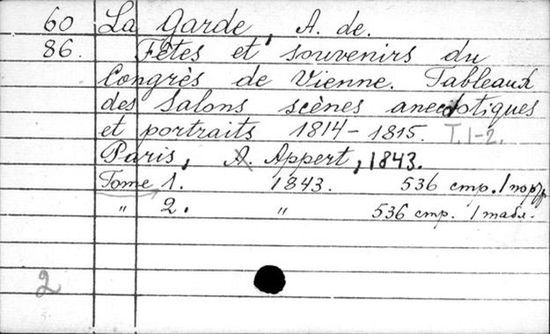 60 La Garde, A. de.
86. Fêtes et souvenirs du
Congrès de Vienne. Tableaux
des salons scènes anecdotiques
et portraits 1814-1815. T.1-2.
Paris, A. Appert, 1843.
Tome 1. 1843. 536 стр. 1 портр.
" 2. " 536 стр. 1 табл.
2